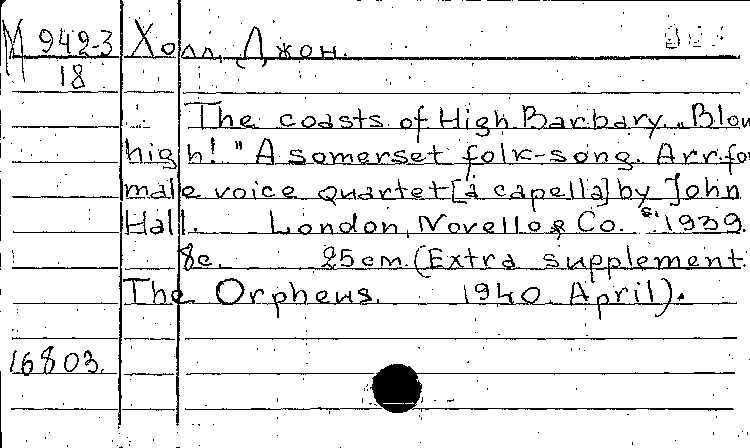 М 942-3 Холл, Джон.
18
The coasts of High Barbary „Blow
high!" A somerset folk-song. Arr. fo
male voice quartet [a capella] by John
Hall. London, Novello & Co. 1939.
8c. 25 cm. (Extra supplement
The Orpheus. 1940. April).
16803.